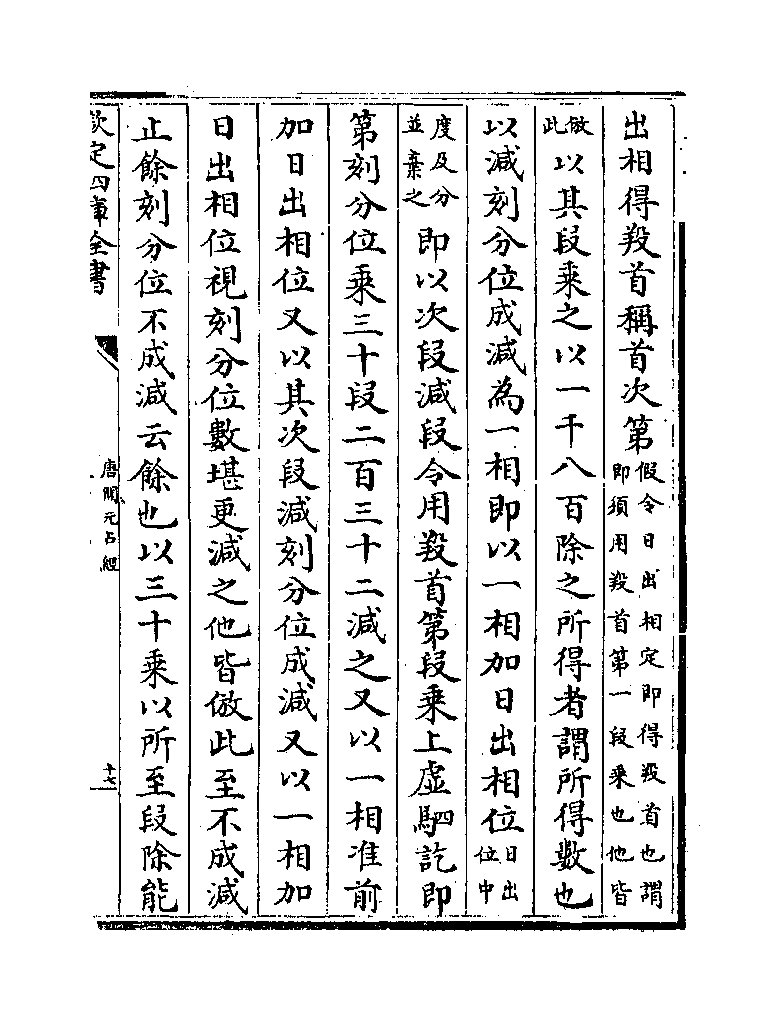 出相得羖首稱首次第假令日出相定即得羖首也謂即須用羖首第一段乘也他皆
倣此以其段乘之以一千八百除之所得者謂所得數也
以減刻分位成減為一相即以一相加日出相位日出位中
度及分並棄之即以次段減段令用羖首第段乘上虛駟訖即
第刻分位乘三十段二百三十二減之又以一相准前
加日出相位又以其次段減刻分位成減又以一相加
日出相位視刻分位數堪更減之他皆倣此至不成減
止餘刻分位不成減云餘也以三十乘以所至段除能
欽定四庫全書
唐開元占經
十七